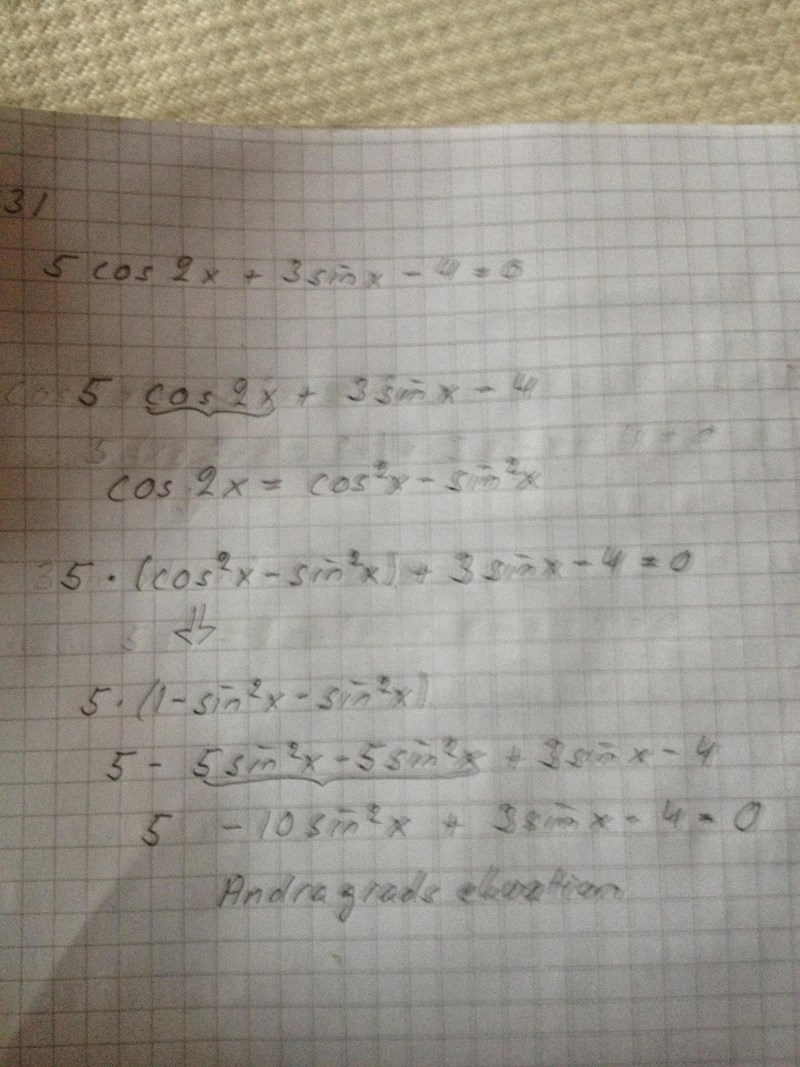 31
5 cos 2x + 3 sin x - 4 = 0
5 cos 2x + 3 sin x - 4
cos 2x = cos²x - sin²x
5 · (cos²x - sin²x) + 3 sin x - 4 = 0
⇓
5 · (1 - sin²x - sin²x)
5 - 5 sin²x - 5 sin²x + 3 sin x - 4
5 - 10 sin²x + 3 sin x - 4 = 0
Andragrads